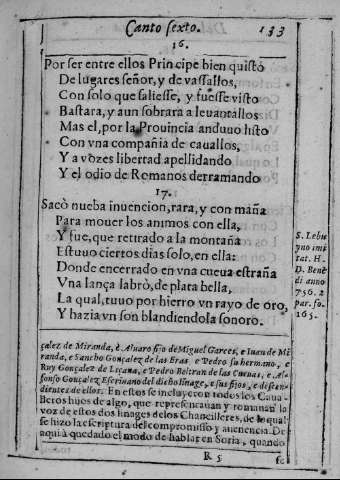 Canto sexto. 133
16.
Por ser entre ellos Principe bien quisto
De lugares señor, y de vassallos,
Con solo que saliesse, y fuesse visto
Bastara, y aun sobrara a leuantallos
Mas el, por la Prouincia anduuo listo
Con vna compañia de cauallos,
Y a vozes libertad apellidando
Y el odio de Romanos derramando
17.
Sacò nueba inuencion, rara, y con maña
Para mouer los animos con ella,
Y fue, que retirado a la montaña
Estuuo ciertos dias solo, en ella:
Donde encerrado en vna cueua estraña
Vna lança labrò, de plata bella,
La qual, tuuo por hierro vn rayo de oro,
Y hazia vn son blandiendola sonoro.
S. Lebu
yno imi
tat. H.
D. Bene
di anno
756. 2
par. fo.
165.
çalez de Miranda, è Aluaro fijo de Miguel Garces, e Iuan de Mi
randa, e Sancho Gonçalez de las Eras e Pedro su hermano, e
Ruy Gonçalez de Liçana, e Pedro Beltran de las Cueuas, e Al-
fonso Gonçalez Escriuano del dicho linage, e sus fijos, e decen-
dientes de ellos: En estos se incluyeron todos los Caua-
lleros hijos de algo, que representauan y tomauan la
voz de estos dos linages de los Chancilleres, de lo qual
se hizo la escriptura del compromisso y auenencia. De
aqui à quedado el modo de hablar en Soria, quando
R 5 se